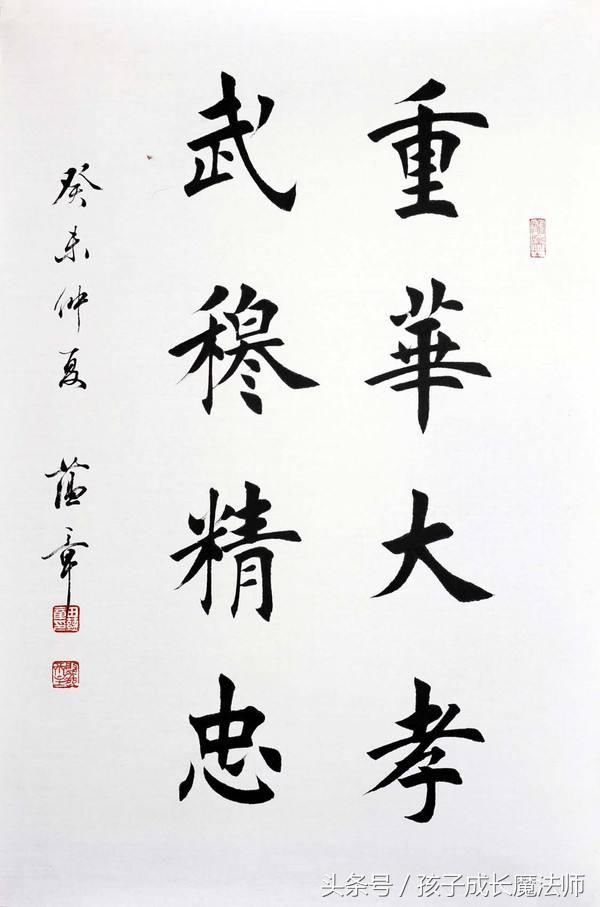 重華大孝
武穆精忠
癸未仲夏 蕴章
头条号/孩子成长魔法师